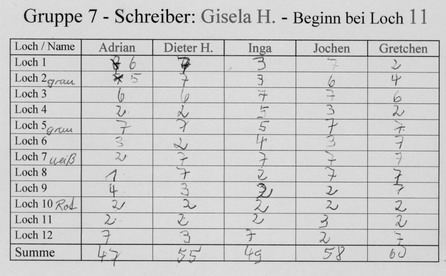 Gruppe 7 - Schreiber: Gisela H. - Beginn bei Loch 11
Loch / Name Adrian Dieter H. Inga Jochen Gretchen
Loch 1 6 7 3 7 2
Loch 2 grau 5 7 3 6 4
Loch 3 6 6 7 7 6
Loch 4 2 2 5 3 2
Loch 5 grau 7 7 5 7 7
Loch 6 3 2 4 3 7
Loch 7 weiß 2 7 7 7 7
Loch 8 1 7 2 7 7
Loch 9 4 3 2 2 7
Loch 10 Rot 2 2 2 2 2
Loch 11 2 2 2 3 2
Loch 12 7 3 7 2 7
Summe 47 55 49 58 60